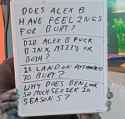 DOES ALEX B
HAVE FEELINGS
FOR BURT?
DID ALEX B FUCK
DINK, MISTY OR
BOTH?
IS LANDON ATTRACTED
TO BURT?
WHY DOES BEN LOOK
SO MUCH OLDER IN
SEASON 5?